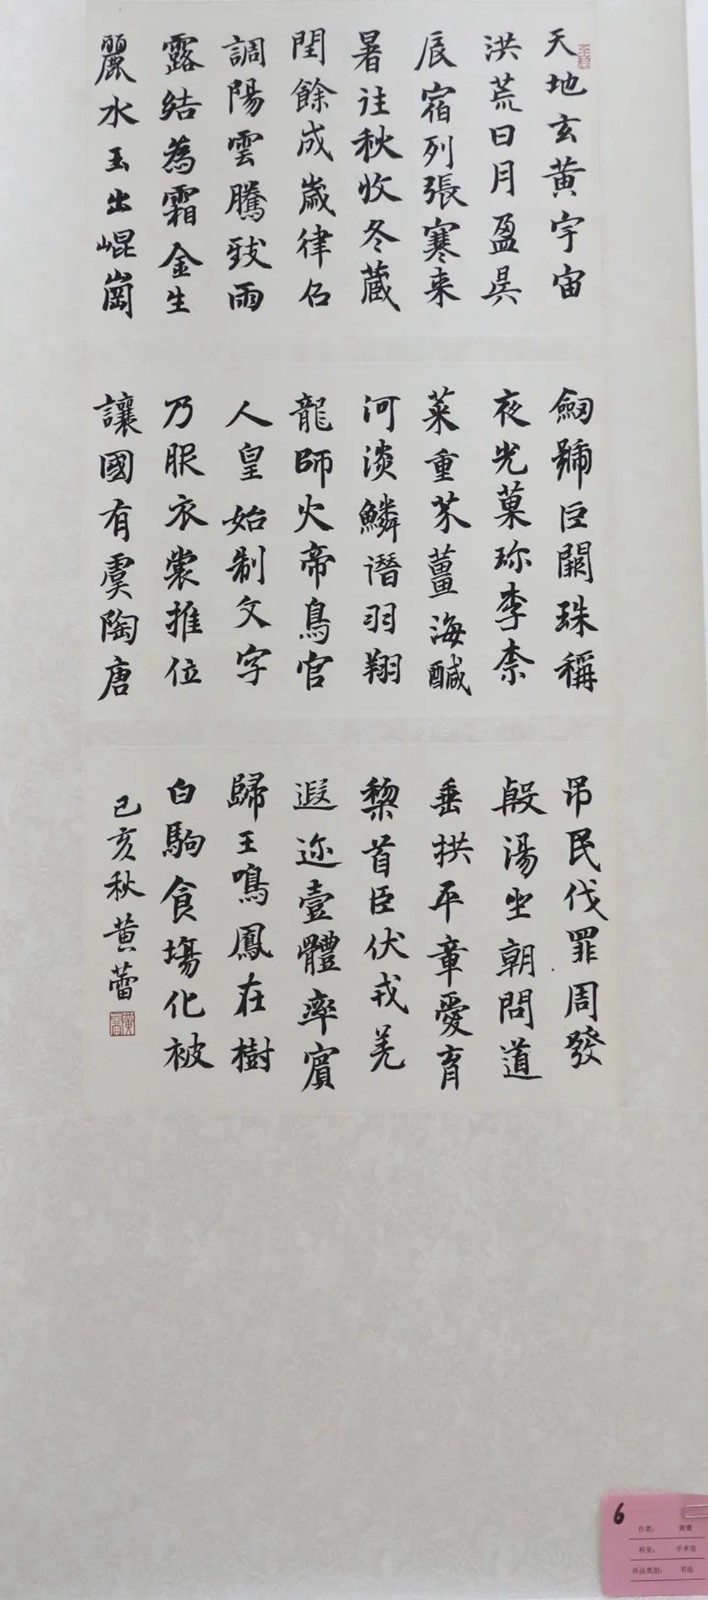 天地玄黃宇宙
洪荒日月盈昃
辰宿列張寒來
暑往秋收冬藏
閏餘成歲律召
調陽雲騰致雨
露結為霜金生
麗水玉出崐崗
劒號巨闕珠稱
夜光菓珎李柰
菜重芥薑海醎
河淡鱗潛羽翔
龍師火帝鳥官
人皇始制文字
乃服衣裳推位
讓國有虞陶唐
弔民伐罪周發
殷湯坐朝問道
垂拱平章愛育
黎首臣伏戎羌
遐迩壹體率賓
歸王鳴鳳在樹
白駒食塲化被
己亥秋黄蕾
6
作者: 黄蕾
科室: 手术室
作品类别: 书法